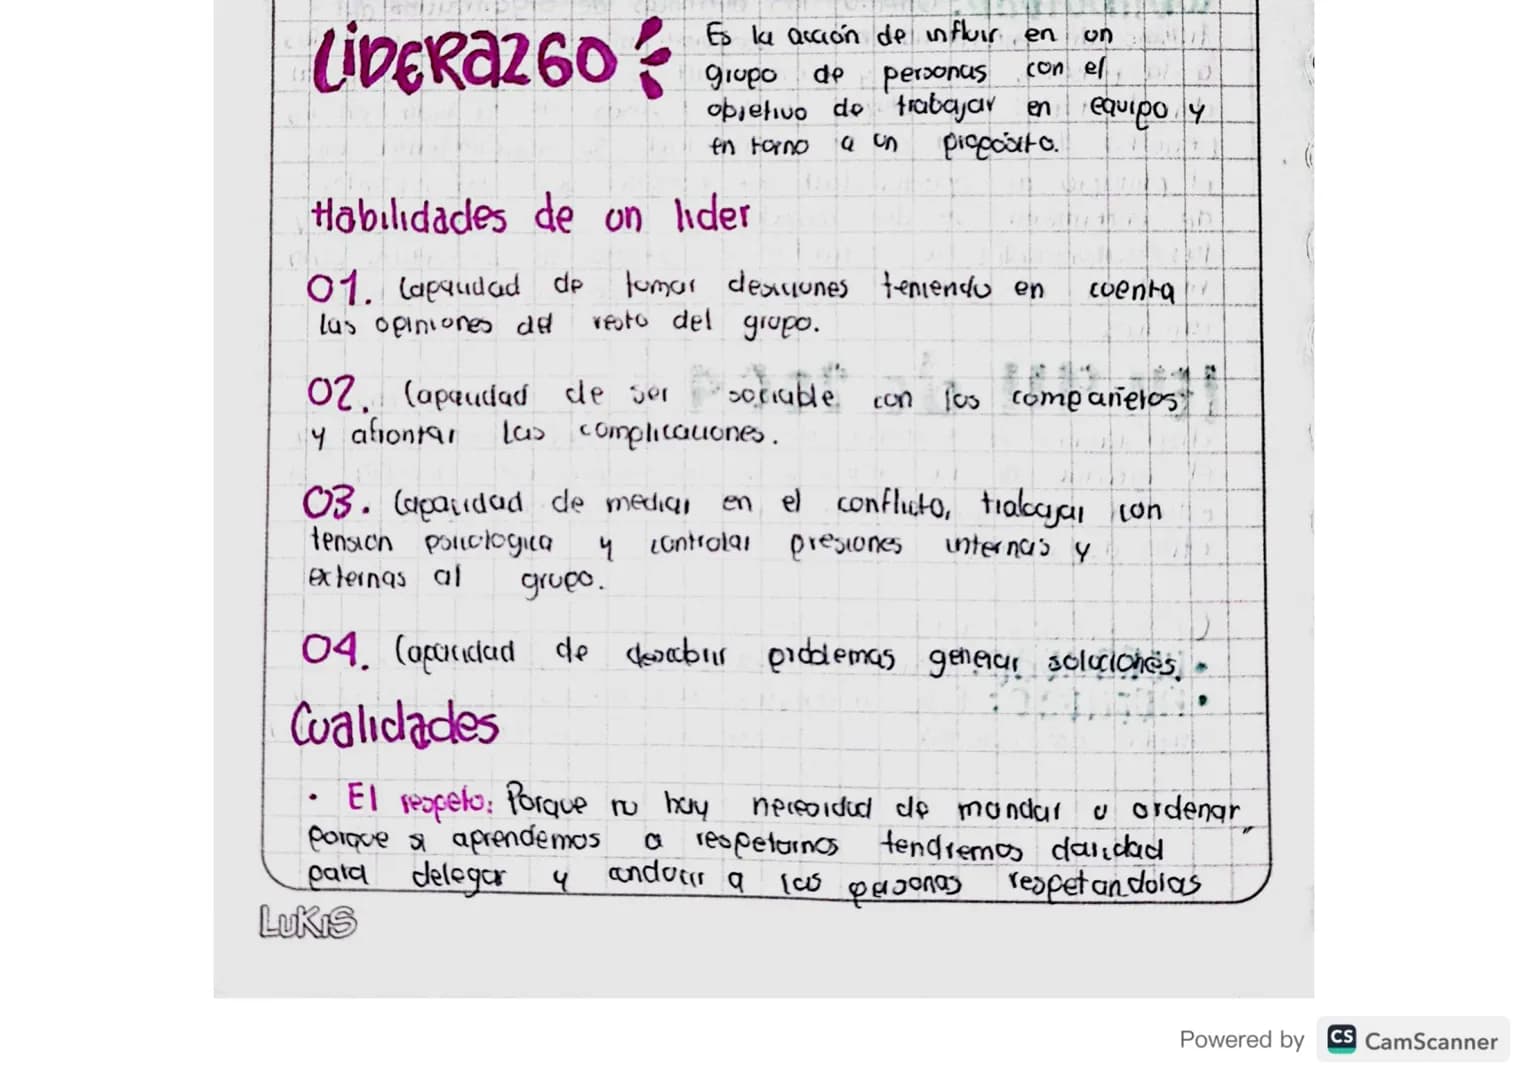 LiDERAZGO
Es la acción de influir en un
grupo de personas con el
objetivo de trabajar en equipo y
en torno a un proposito.
Habilidades de un lider
01. Capacidad de tomar desiciones teniendo en cuenta
las opiniones del resto del grupo.
02. Capacidad de ser sociable con los compañeros
y afrontar las complicaciones.
03. Capacidad de mediar en el conflicto, trabajar con
tension psicologica y controlar presiones internas y
externas al grupo.
04. Capacidad de descubrir problemas generar soluciones.
Cualidades
• El respeto: Porque no hay necesidad de mandar u ordenar,
porque si aprendemos a respetarnos tendremos claridad
para delegar y conducir a las personas respetandolas
LUKIS
Powered by CS CamScanner